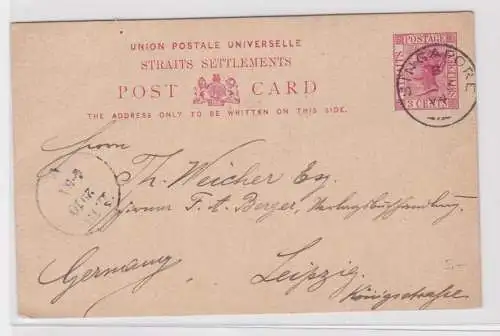 UNION POSTALE UNIVERSELLE
STRAITS SETTLEMENTS
POST CARD
THE ADDRESS ONLY TO BE WRITTEN ON THIS SIDE.
STRAITS POSTAGE SETTLEMENTS
3 CENTS
SINGAPORE
Herrn
Th. Weicher Esq.
F. A. Berger, Verlagsbuchhandlung
Germany Leipzig.
Königstrasse